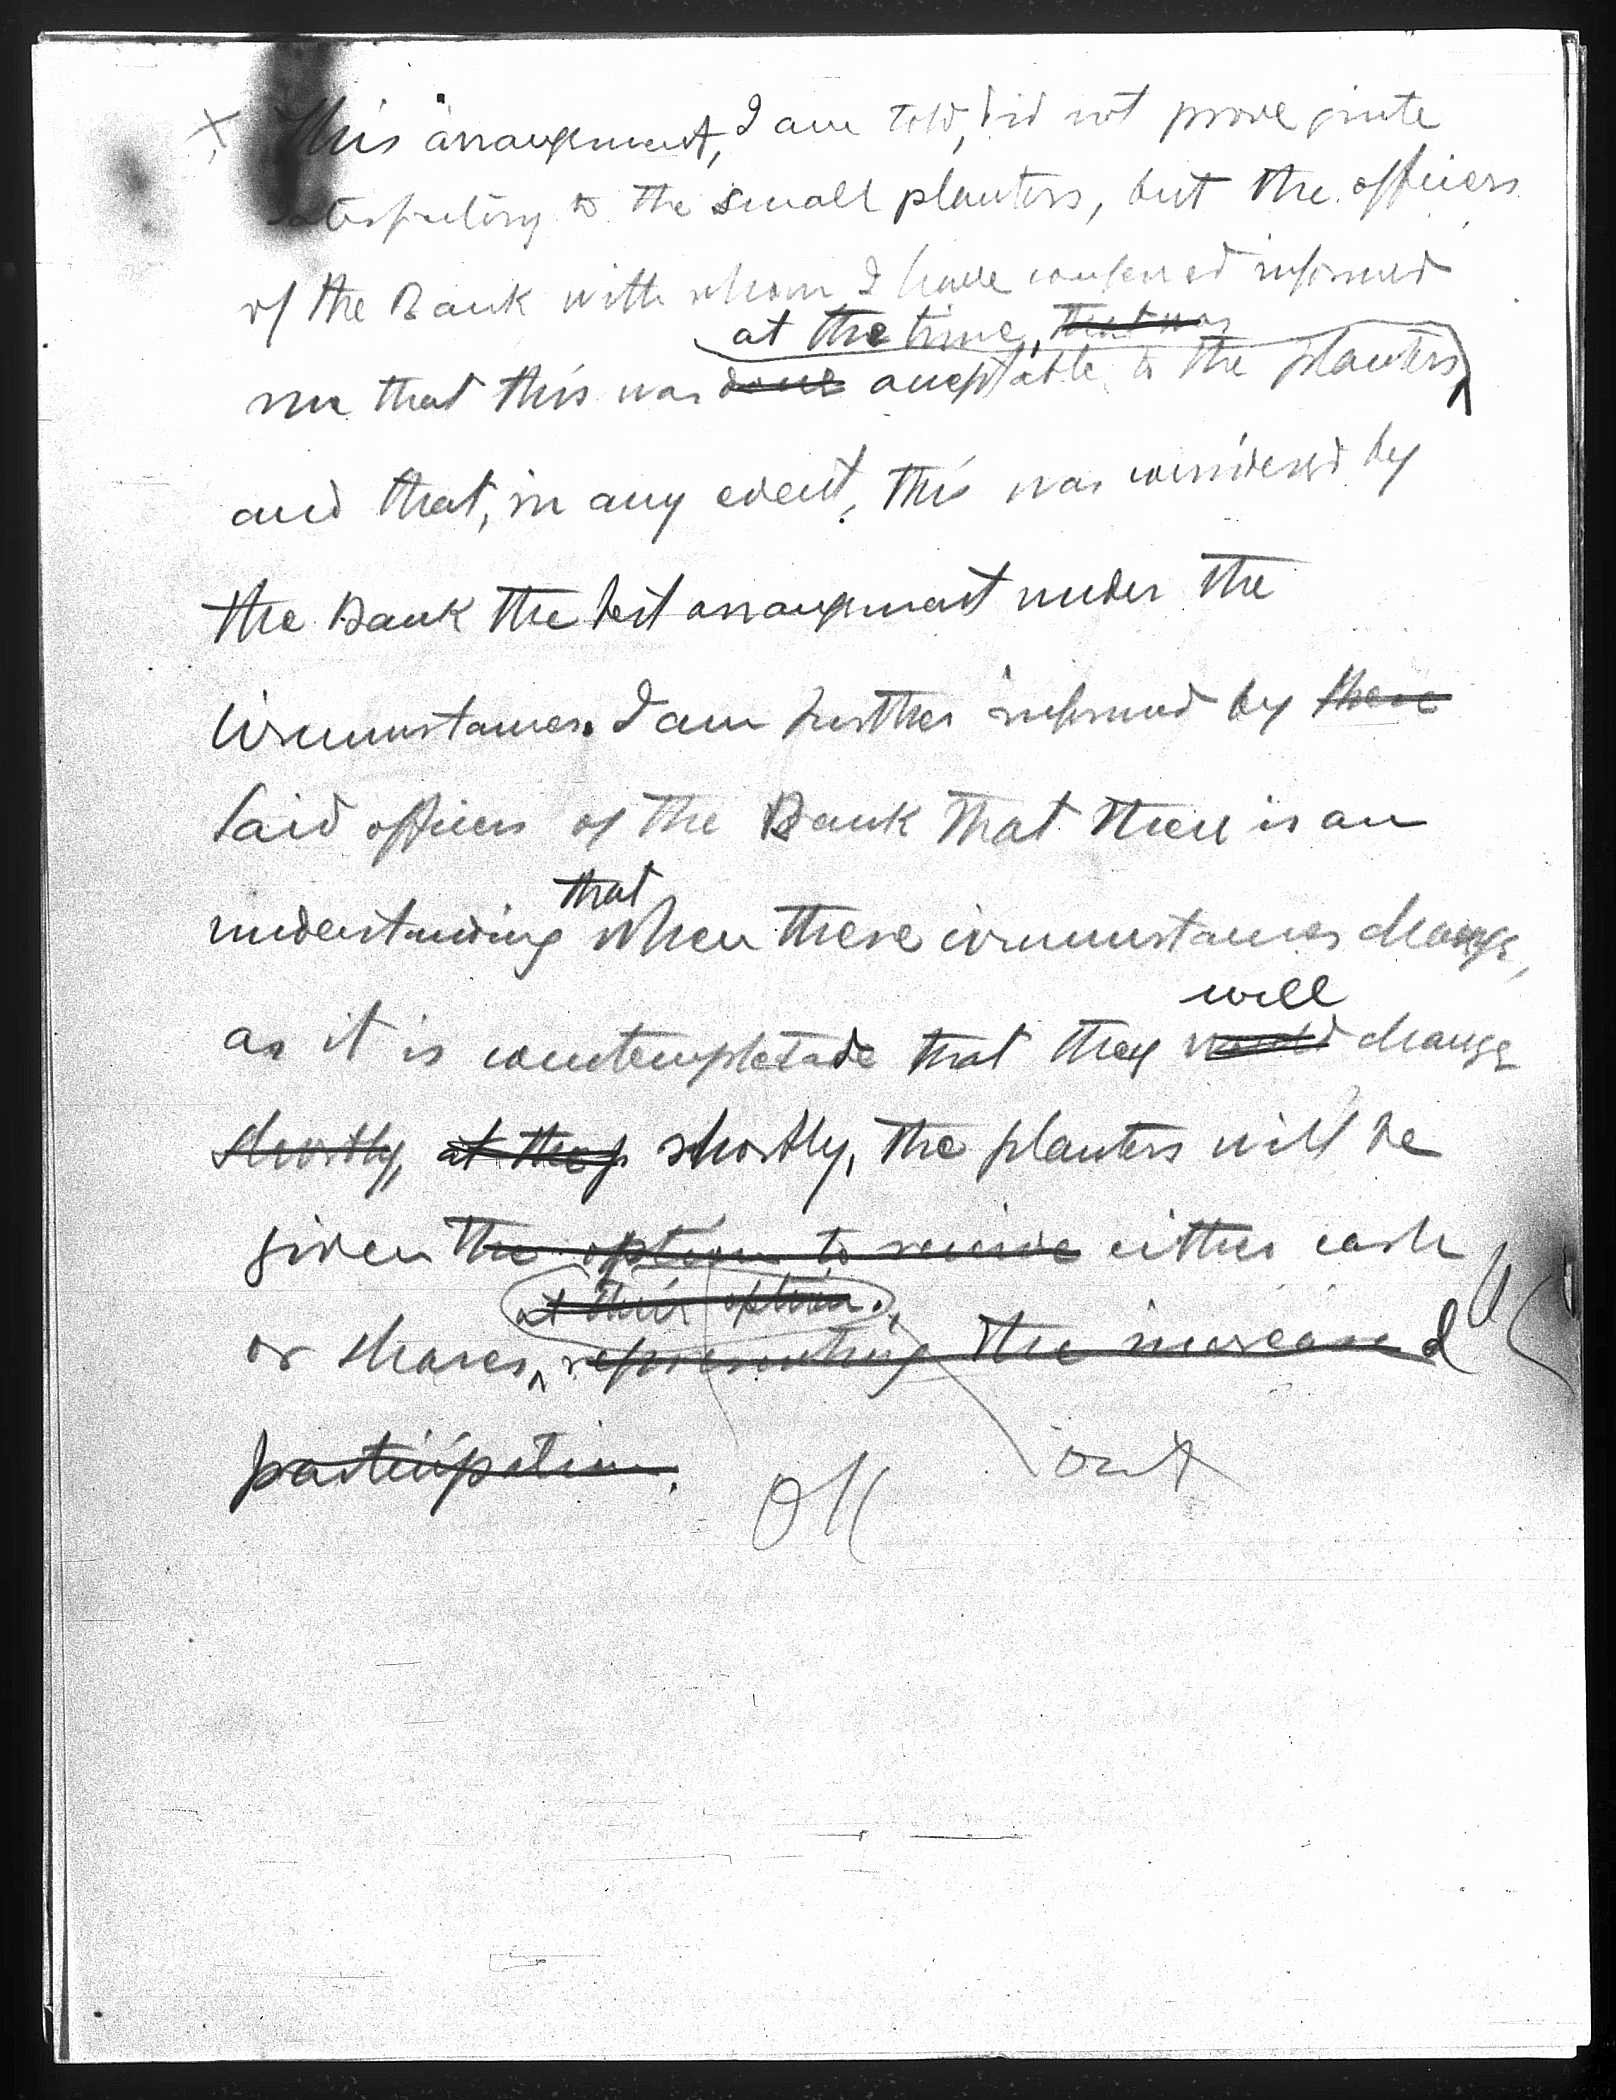 X This arrangement, I am told, did not prove quite
satisfactory to the small planters, but the officers
of the Bank with whom I have conferred informed
at the time, that was
me that this was done acceptable to the planters,
and that, in any event, this was considered by
the Bank the best arrangement under the
circumstances. I am further informed by these
said officers of the Bank that there is an
that
understanding when these circumstances change,
will
as it is contemplated that they would change
shortly, at they shortly, the planters will be
given the option to receive either cash
at their option.
or shares, representing the increased
participation.
OK out